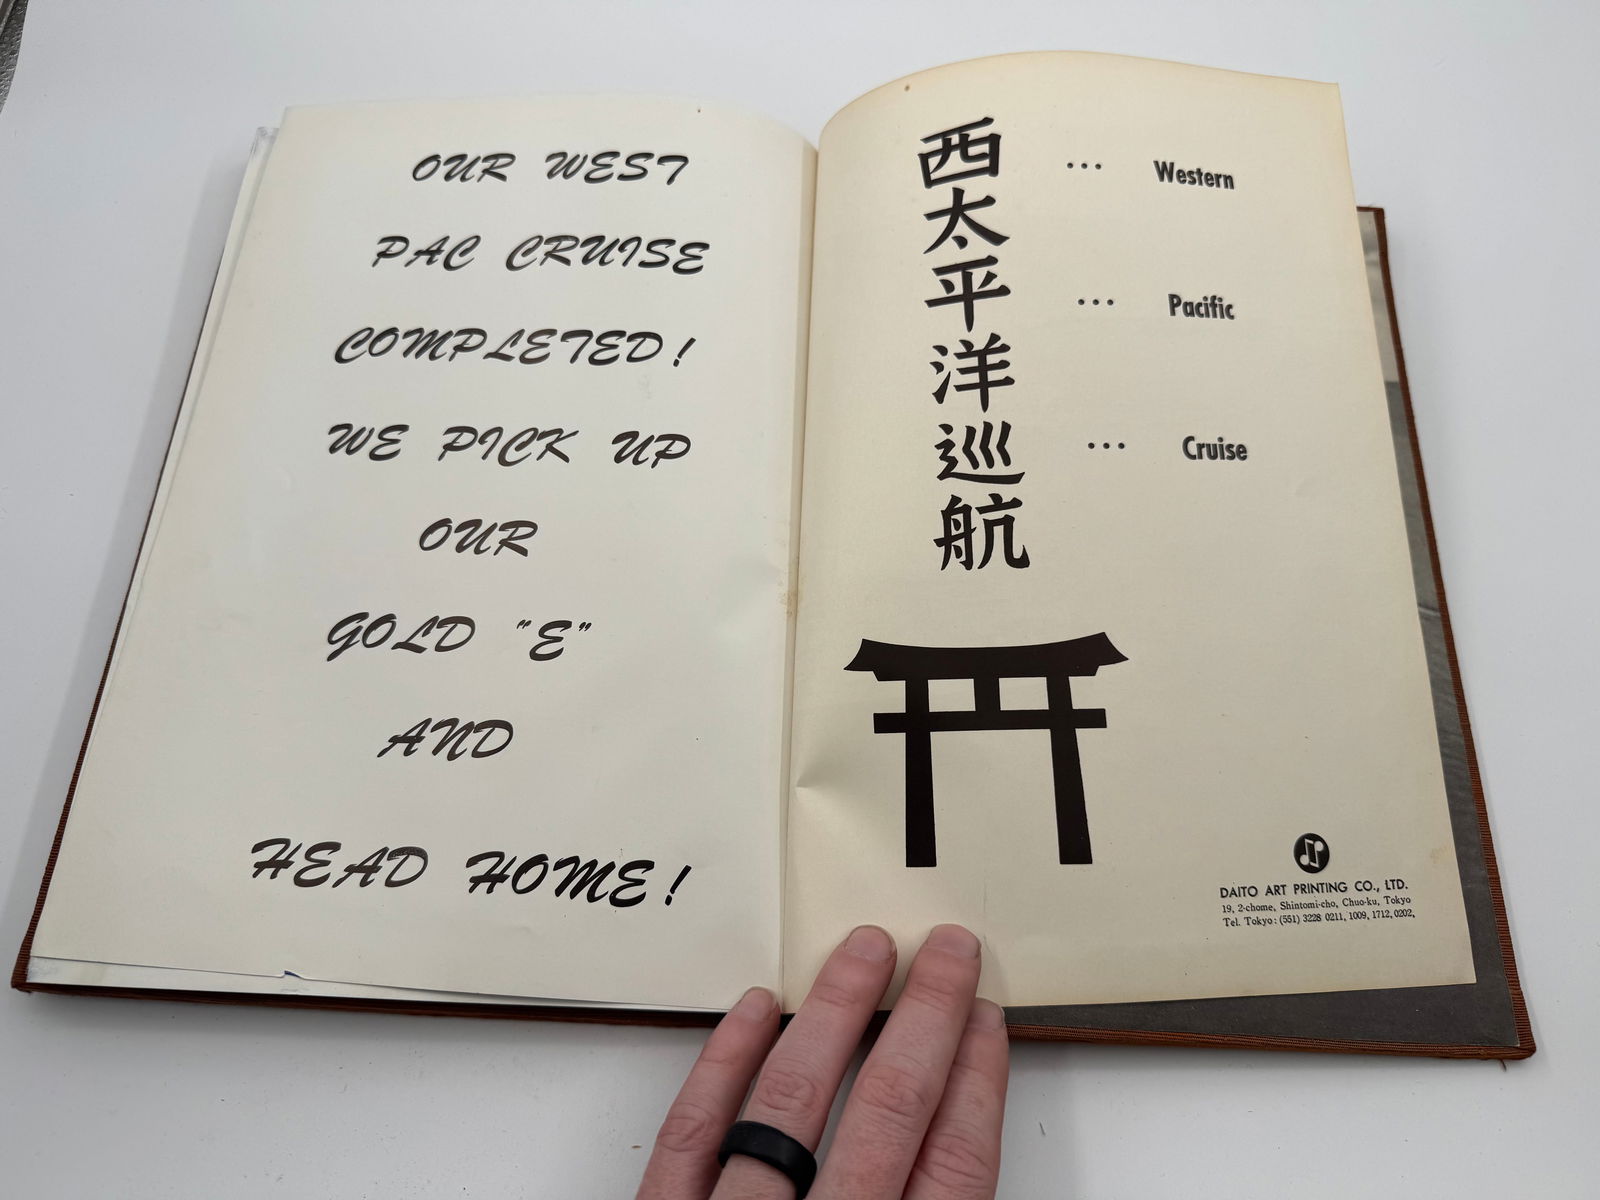 OUR WEST
PAC CRUISE
COMPLETED!
WE PICK UP
OUR
GOLD "E"
AND
HEAD HOME!
西太平洋巡航
... Western
... Pacific
... Cruise
DAITO ART PRINTING CO., LTD.
19, 2-chome, Shintomi-cho, Chuo-ku, Tokyo
Tel. Tokyo: (551) 3228 0211, 1009, 1712, 0202,